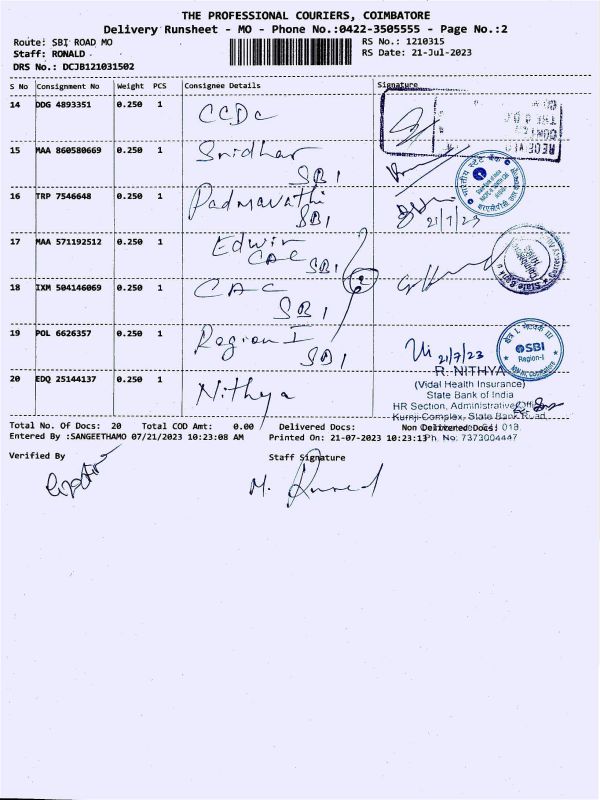 THE PROFESSIONAL COURIERS, COIMBATORE
Delivery Runsheet - MO - Phone No.:0422-3505555 - Page No.:2
Route: SBI ROAD MO
RS No.: 1210315
Staff: RONALD
RS Date: 21-Jul-2023
DRS No.: DCJB121031502
S No Consignment No Weight PCS Consignee Details Signature
14 DDG 4893351 0.250 1 CCDC
15 MAA 860580669 0.250 1 Sridhar SBI
16 TRP 7546648 0.250 1 Padmavathi SBI 21/7/23
17 MAA 571192512 0.250 1 Edwin CAC SBI
18 IXM 504146069 0.250 1 CAC SBI
19 POL 6626357 0.250 1 Region I SBI 21/7/23
SBI
Region-I
20 EDQ 25144137 0.250 1 Nithya
R. NITHYA
(Vidal Health Insurance)
State Bank of India
HR Section, Administrative Office
Kurinji Complex, State Bank Road,
Total No. Of Docs: 20 Total COD Amt: 0.00 Delivered Docs: Non Delivered Docs:
Entered By :SANGEETHAMO 07/21/2023 10:23:08 AM Printed On: 21-07-2023 10:23:13
Ph. No: 7373004447
Verified By Staff Signature